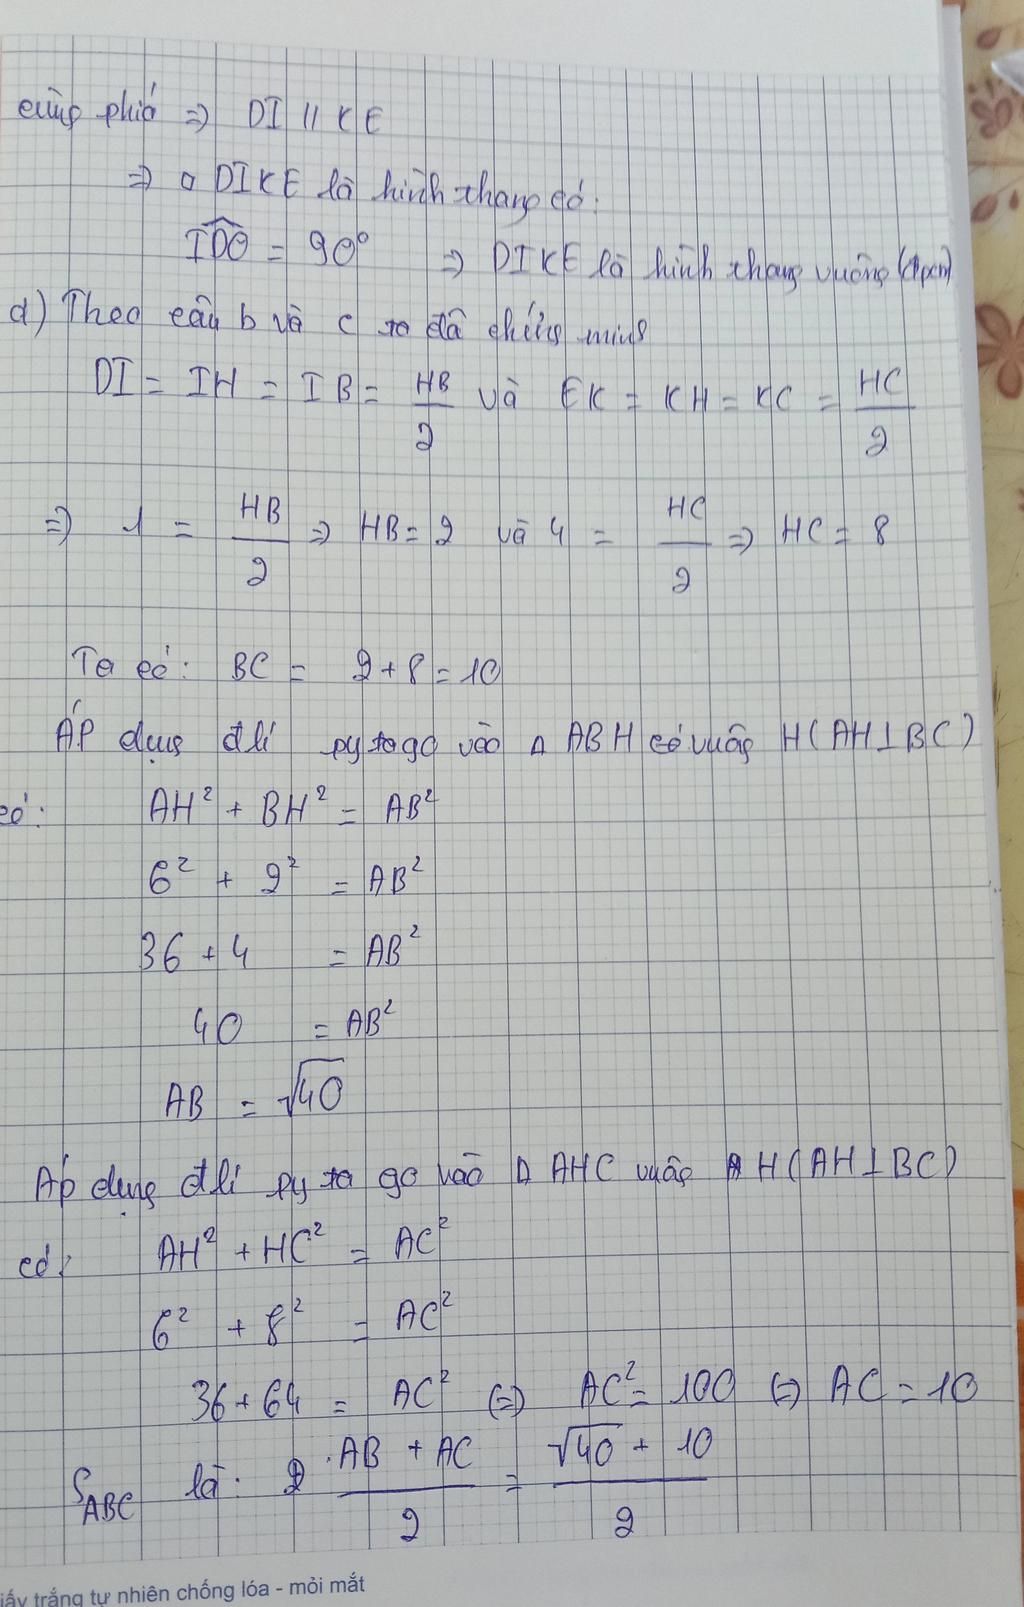 cùng phía => DI // KE
=> □ DIKE là hình thang có:
IDO = 90° => DIKE là hình thang vuông (đpcm)
d) Theo câu b và c ta đã chứng minh
DI = IH = IB = HB/2 và EK = KH = KC = HC/2
=> 1 = HB/2 => HB = 2 và 4 = HC/2 => HC = 8
Ta có: BC = 2 + 8 = 10
Áp dụng đ lí pytago vào Δ ABH có vuông H (AH ⊥ BC)
có: AH² + BH² = AB²
6² + 2² = AB²
36 + 4 = AB²
40 = AB²
AB = √40
Áp dụng đ lí py ta go vào Δ AHC vuông H (AH ⊥ BC)
có: AH² + HC² = AC²
6² + 8² = AC²
36 + 64 = AC² (=) AC² = 100 (=) AC = 10
S_ABC là: AB + AC/2 = √40 + 10/2
iấy trắng tự nhiên chống lóa - mỏi mắt